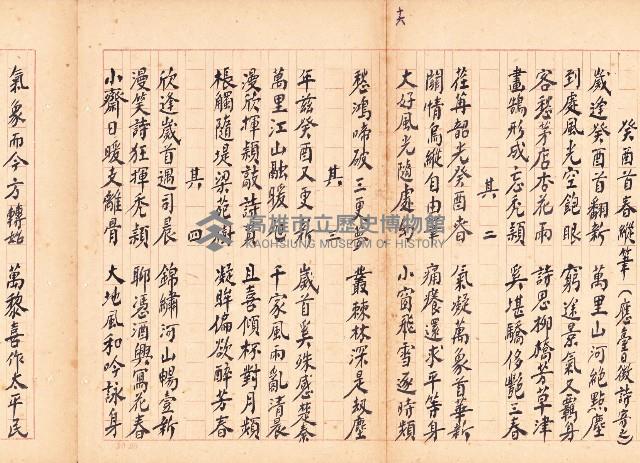 六
癸酉首春縱筆（應臺日徵詩寄之）
歲逢癸酉首翻新　萬里山河絕點塵
到處風光空飽眼　窮途景氣又羈身
客愁茅店杏花雨　詩思柳橋芳草津
畫鵠形成忘禿穎　奚堪驕侈艷三春
其二
荏苒韶光癸酉春　氣凝萬象首華新
關情鳥縱自由　痛癢還求平等身
大好風光隨處　小窗飛雪逐時頻
愁鴻啼破三更夢　叢棘林深是劫塵
其三
年茲癸酉又更新　歲首奚殊感楚秦
萬里江山融暖　千家風雨亂清晨
漫欣揮穎敲詩　且喜傾杯對月頻
棖觸隨堤梁苑樹　凝眸偏欲醉芳春
其四
欣逢歲首遇司晨　錦繡河山暢壹新
漫笑詩狂揮禿穎　聊憑酒興寫花春
小齋日暖支離骨　大地風和吟詠身
氣象而今方轉始　萬黎喜作太平民
高雄市立歷史博物館
KAOHSIUNG MUSEUM OF HISTORY